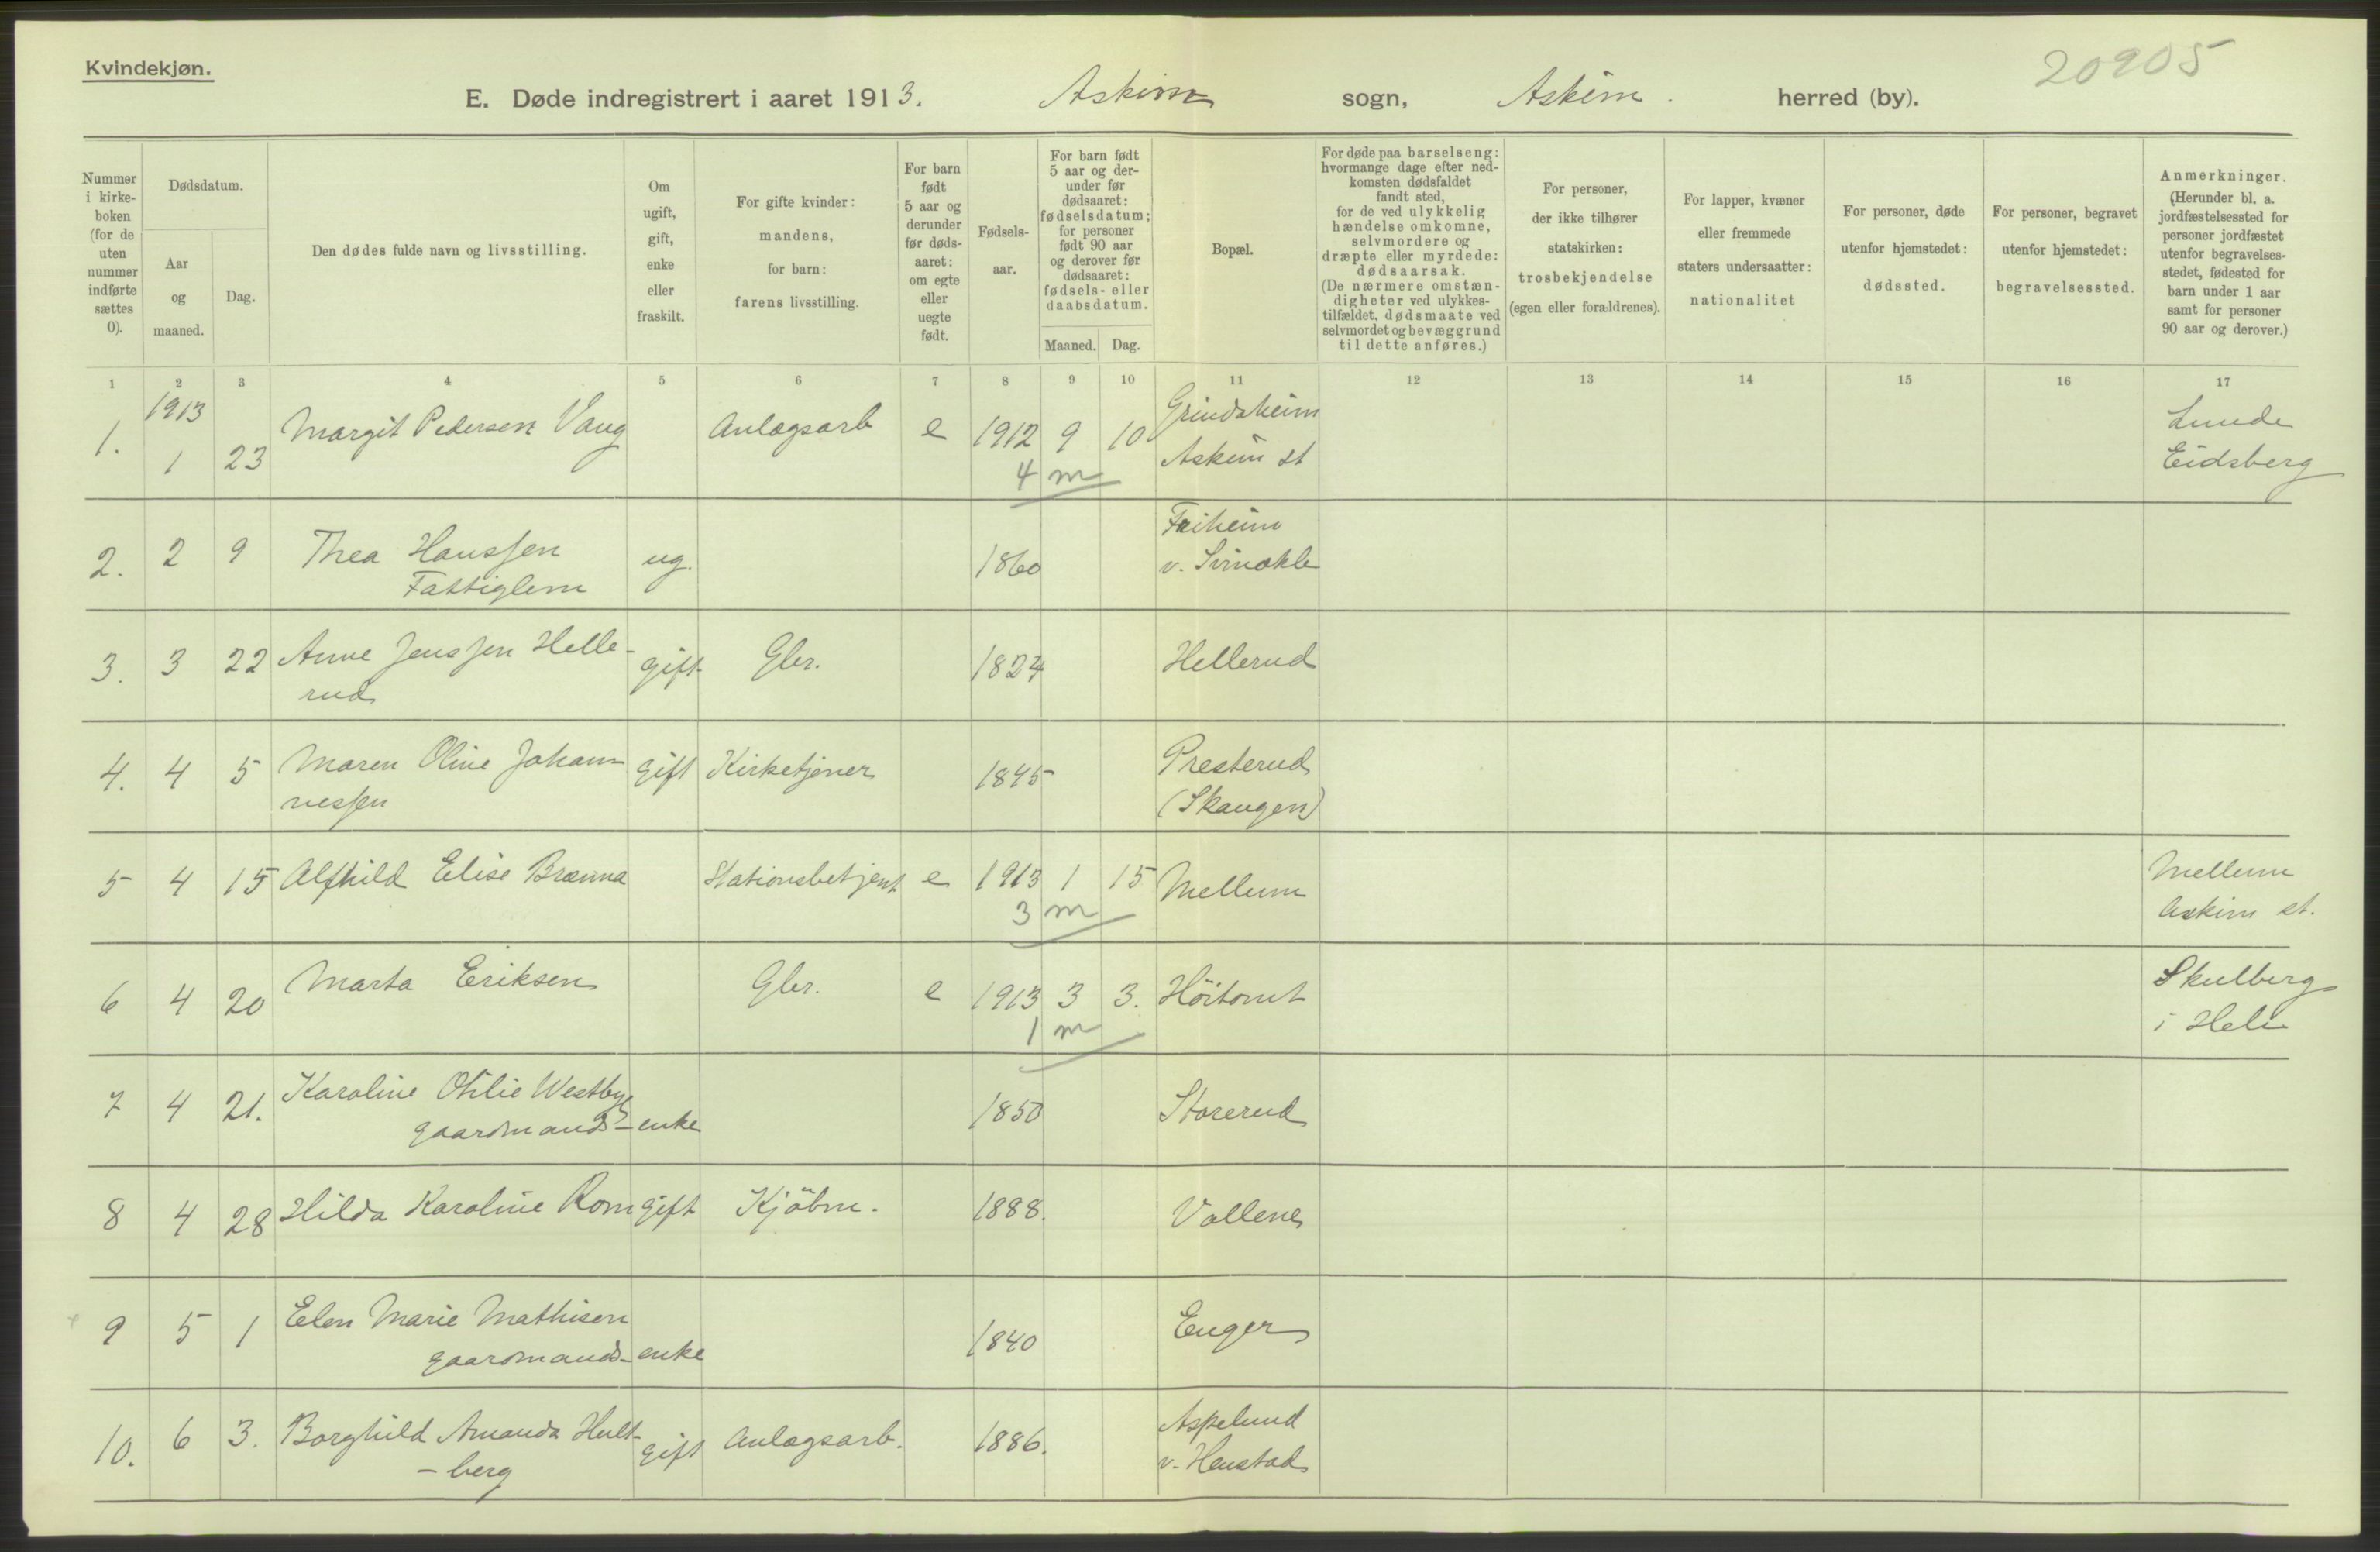 Kvindekjøn.
20905
E. Døde indregistrert i aaret 1913. Askim sogn, Askim. herred (by).
Nummer i kirke-boken (for de uten nummer indførte sættes 0).
Dødsdatum.
Aar og maaned.
Dag.
Den dødes fulde navn og livsstilling.
Om ugift, gift, enke eller fraskilt.
For gifte kvinder: mandens, for barn: farens livsstilling.
For barn født 5 aar og derunder før døds-aaret: om egte eller uegte født.
Fødsels-aar.
For barn født 5 aar og der-under før dødsaaret: fødselsdatum; for personer født 90 aar og derover før dødsaaret: fødsels- eller daabsdatum.
Maaned. Dag.
Bopæl.
For døde paa barselseng: hvormange dage efter ned-komsten dødsfaldet fandt sted, for de ved ulykkelig hændelse omkomne, selvmordere og dræpte eller myrdede: dødsaarsak. (De nærmere omstæn-digheter ved ulykkes-tilfældet, dødsmaate ved selvmordet og bevæggrund til dette anføres.)
For personer, der ikke tilhører statskirken: trosbekjendelse (egen eller forældrenes).
For lapper, kvæner eller fremmede staters undersaatter: nationalitet
For personer, døde utenfor hjemstedet: dødssted.
For personer, begravet utenfor hjemstedet: begravelsessted.
Anmerkninger. (Herunder bl. a. jordfæstelsessted for personer jordfæstet utenfor begravelses-stedet, fødested for barn under 1 aar samt for personer 90 aar og derover.)
1 2 3 4 5 6 7 8 9 10 11 12 13 14 15 16 17
1913
1. 1 23 Margit Pedersen Vaug Anlægsarb e 1912 9 10 Grindaheim Askim st Lunde Eidsberg
4 m
2. 2 9 Thea Hanssen Fattiglem ug. 1860 Friheim v. Svinækle
3. 3 22 Anne Jenssen Helle-rud gift Gbr. 1824 Hellerud
4. 4 5 Maren Oline Johan nessen gift Kirketjener 1845 Presterud (Skaugen)
5 4 15 Alfhild Elise Brænna Stationsbetjent e 1913 1 15 Mellum Mellum Askim st.
3 m
6 4 20 Marta Eriksen Gbr. e 1913 3 3. Höitomt Skulberg i Heli
1 m
7 4 21. Karoline Otilie Westby gaardmands-enke 1850 Storerud
8 4 28 Hilda Karoline Rom gift Kjöbm. 1888. Vallene
9 5 1 Elen Marie Mathisen gaardmands-enke 1840 Enger
10. 6 3. Borghild Amanda Hult-berg gift Anlægsarb. 1886. Aspelund v. Henstad